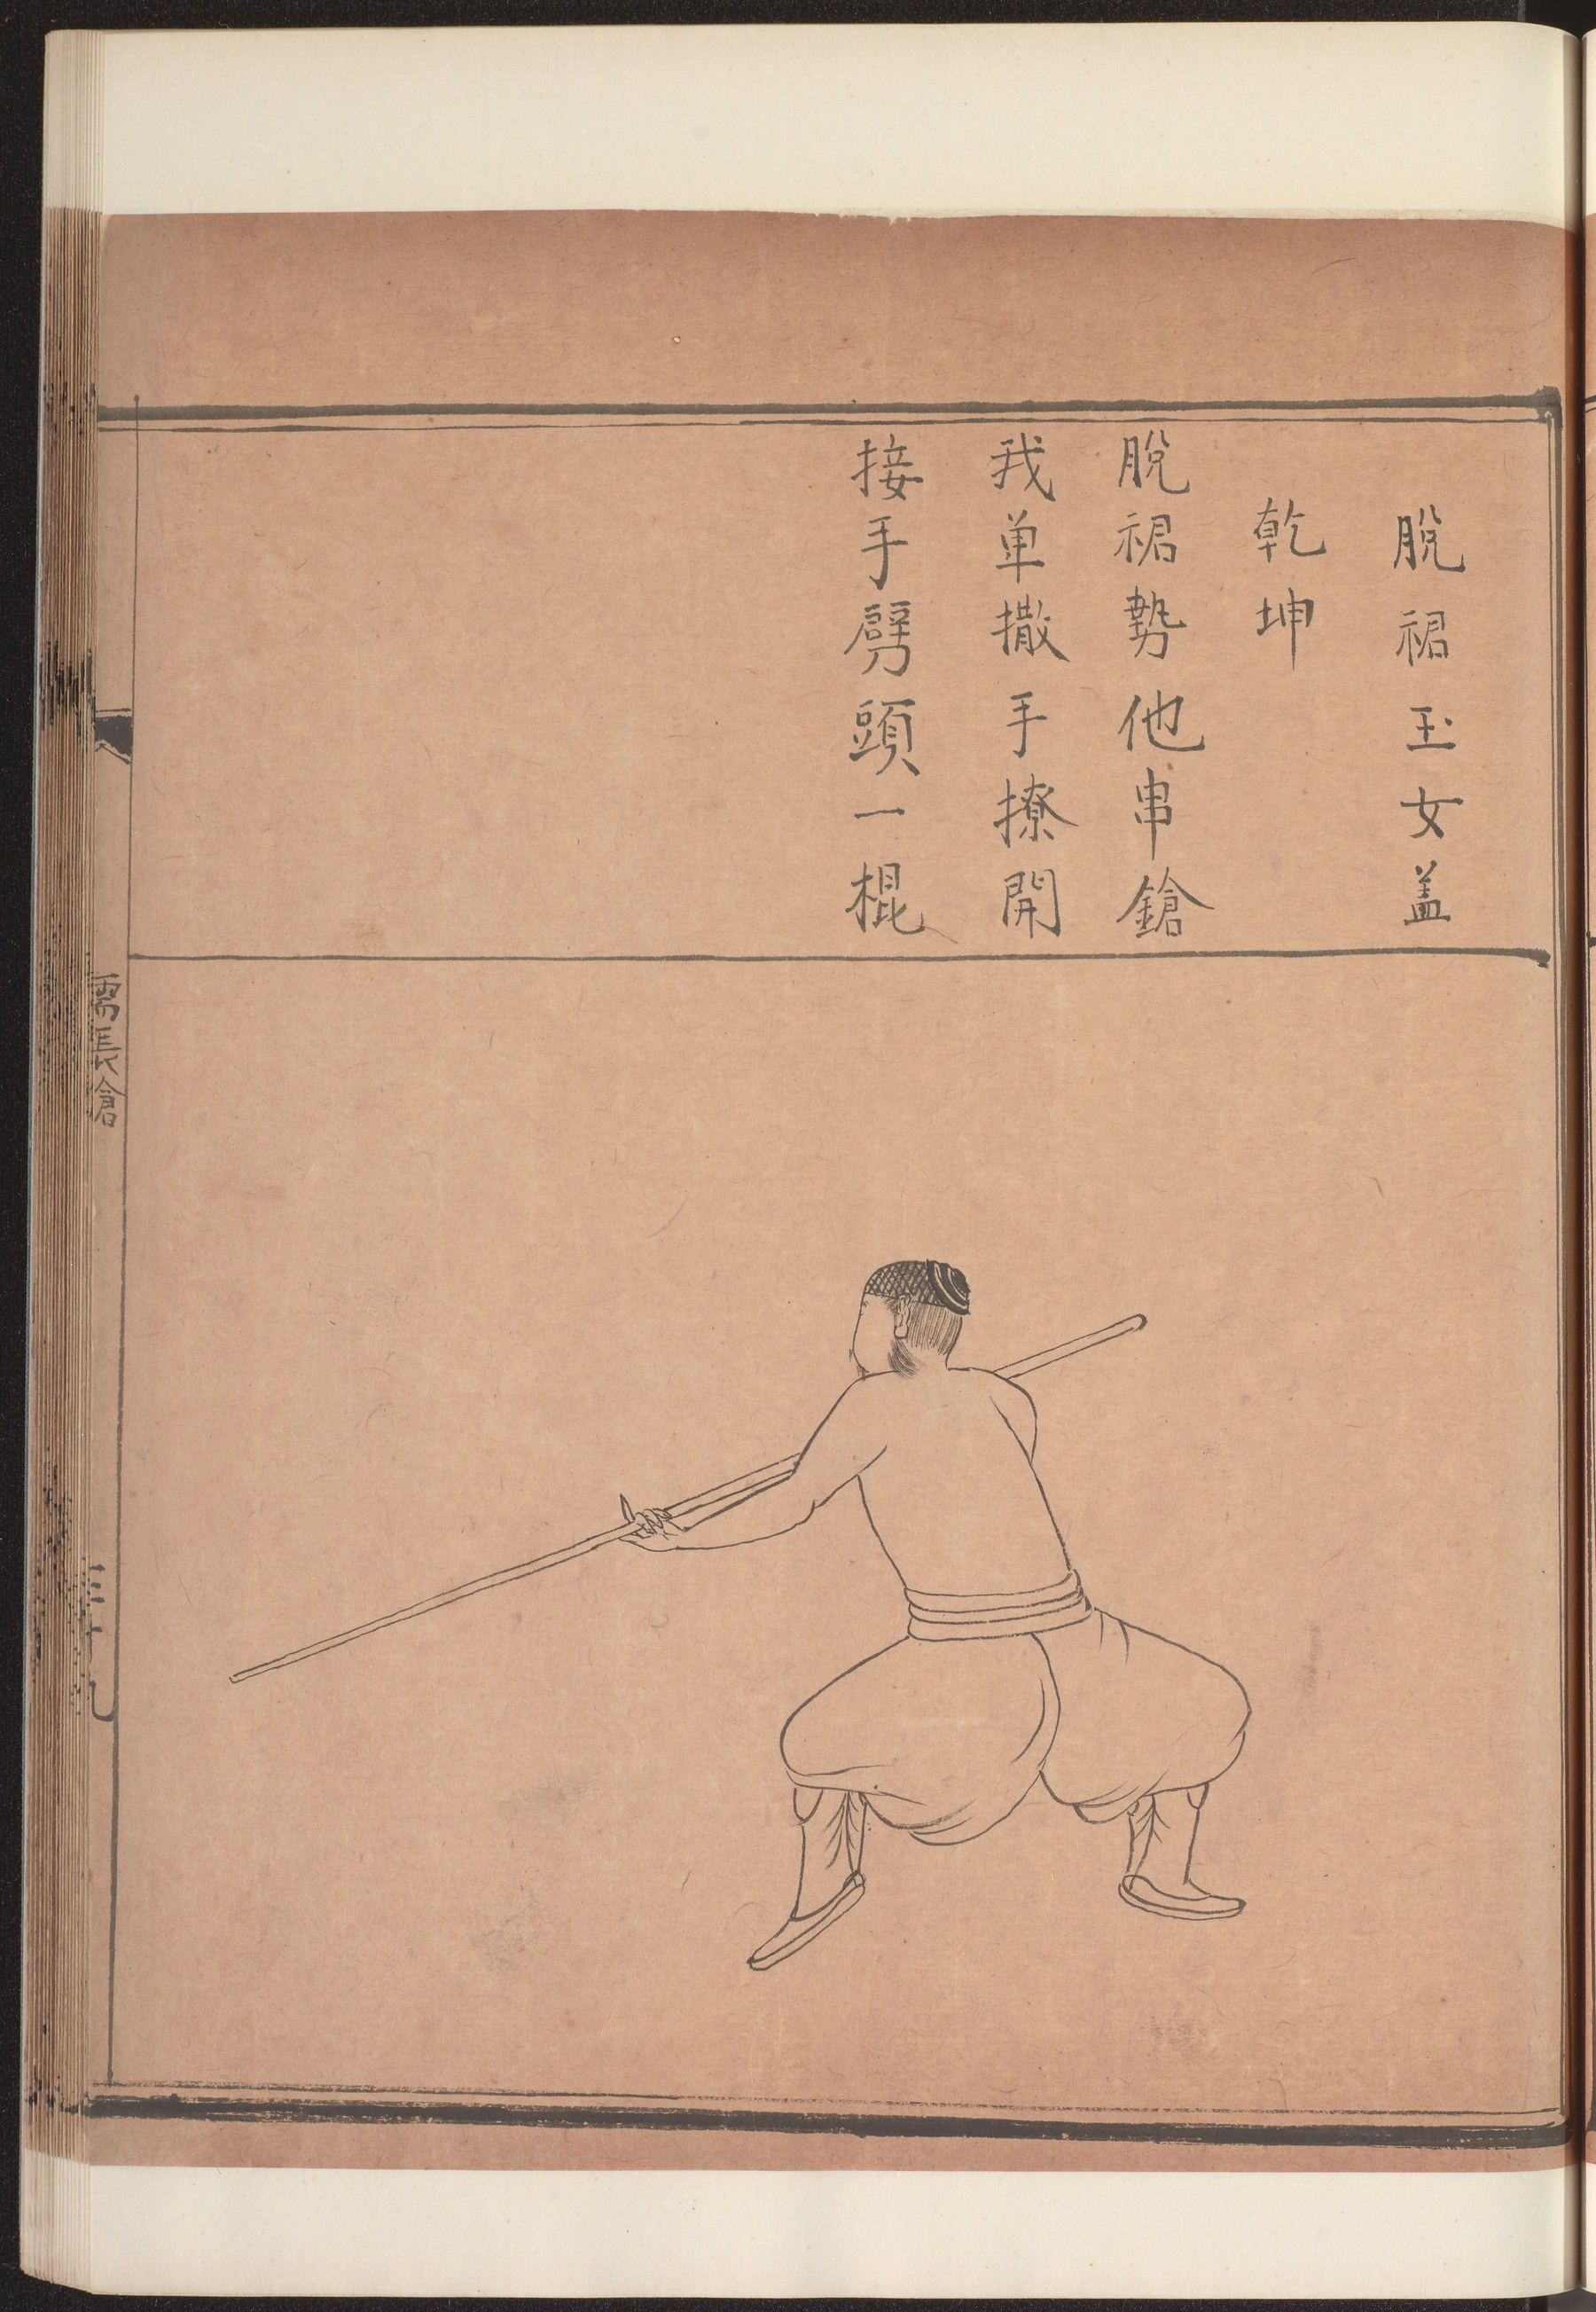 脫裙玉女盖
乾坤
脫裙勢他串鎗
我单撒手撩開
接手劈頭一棍
長
三十九